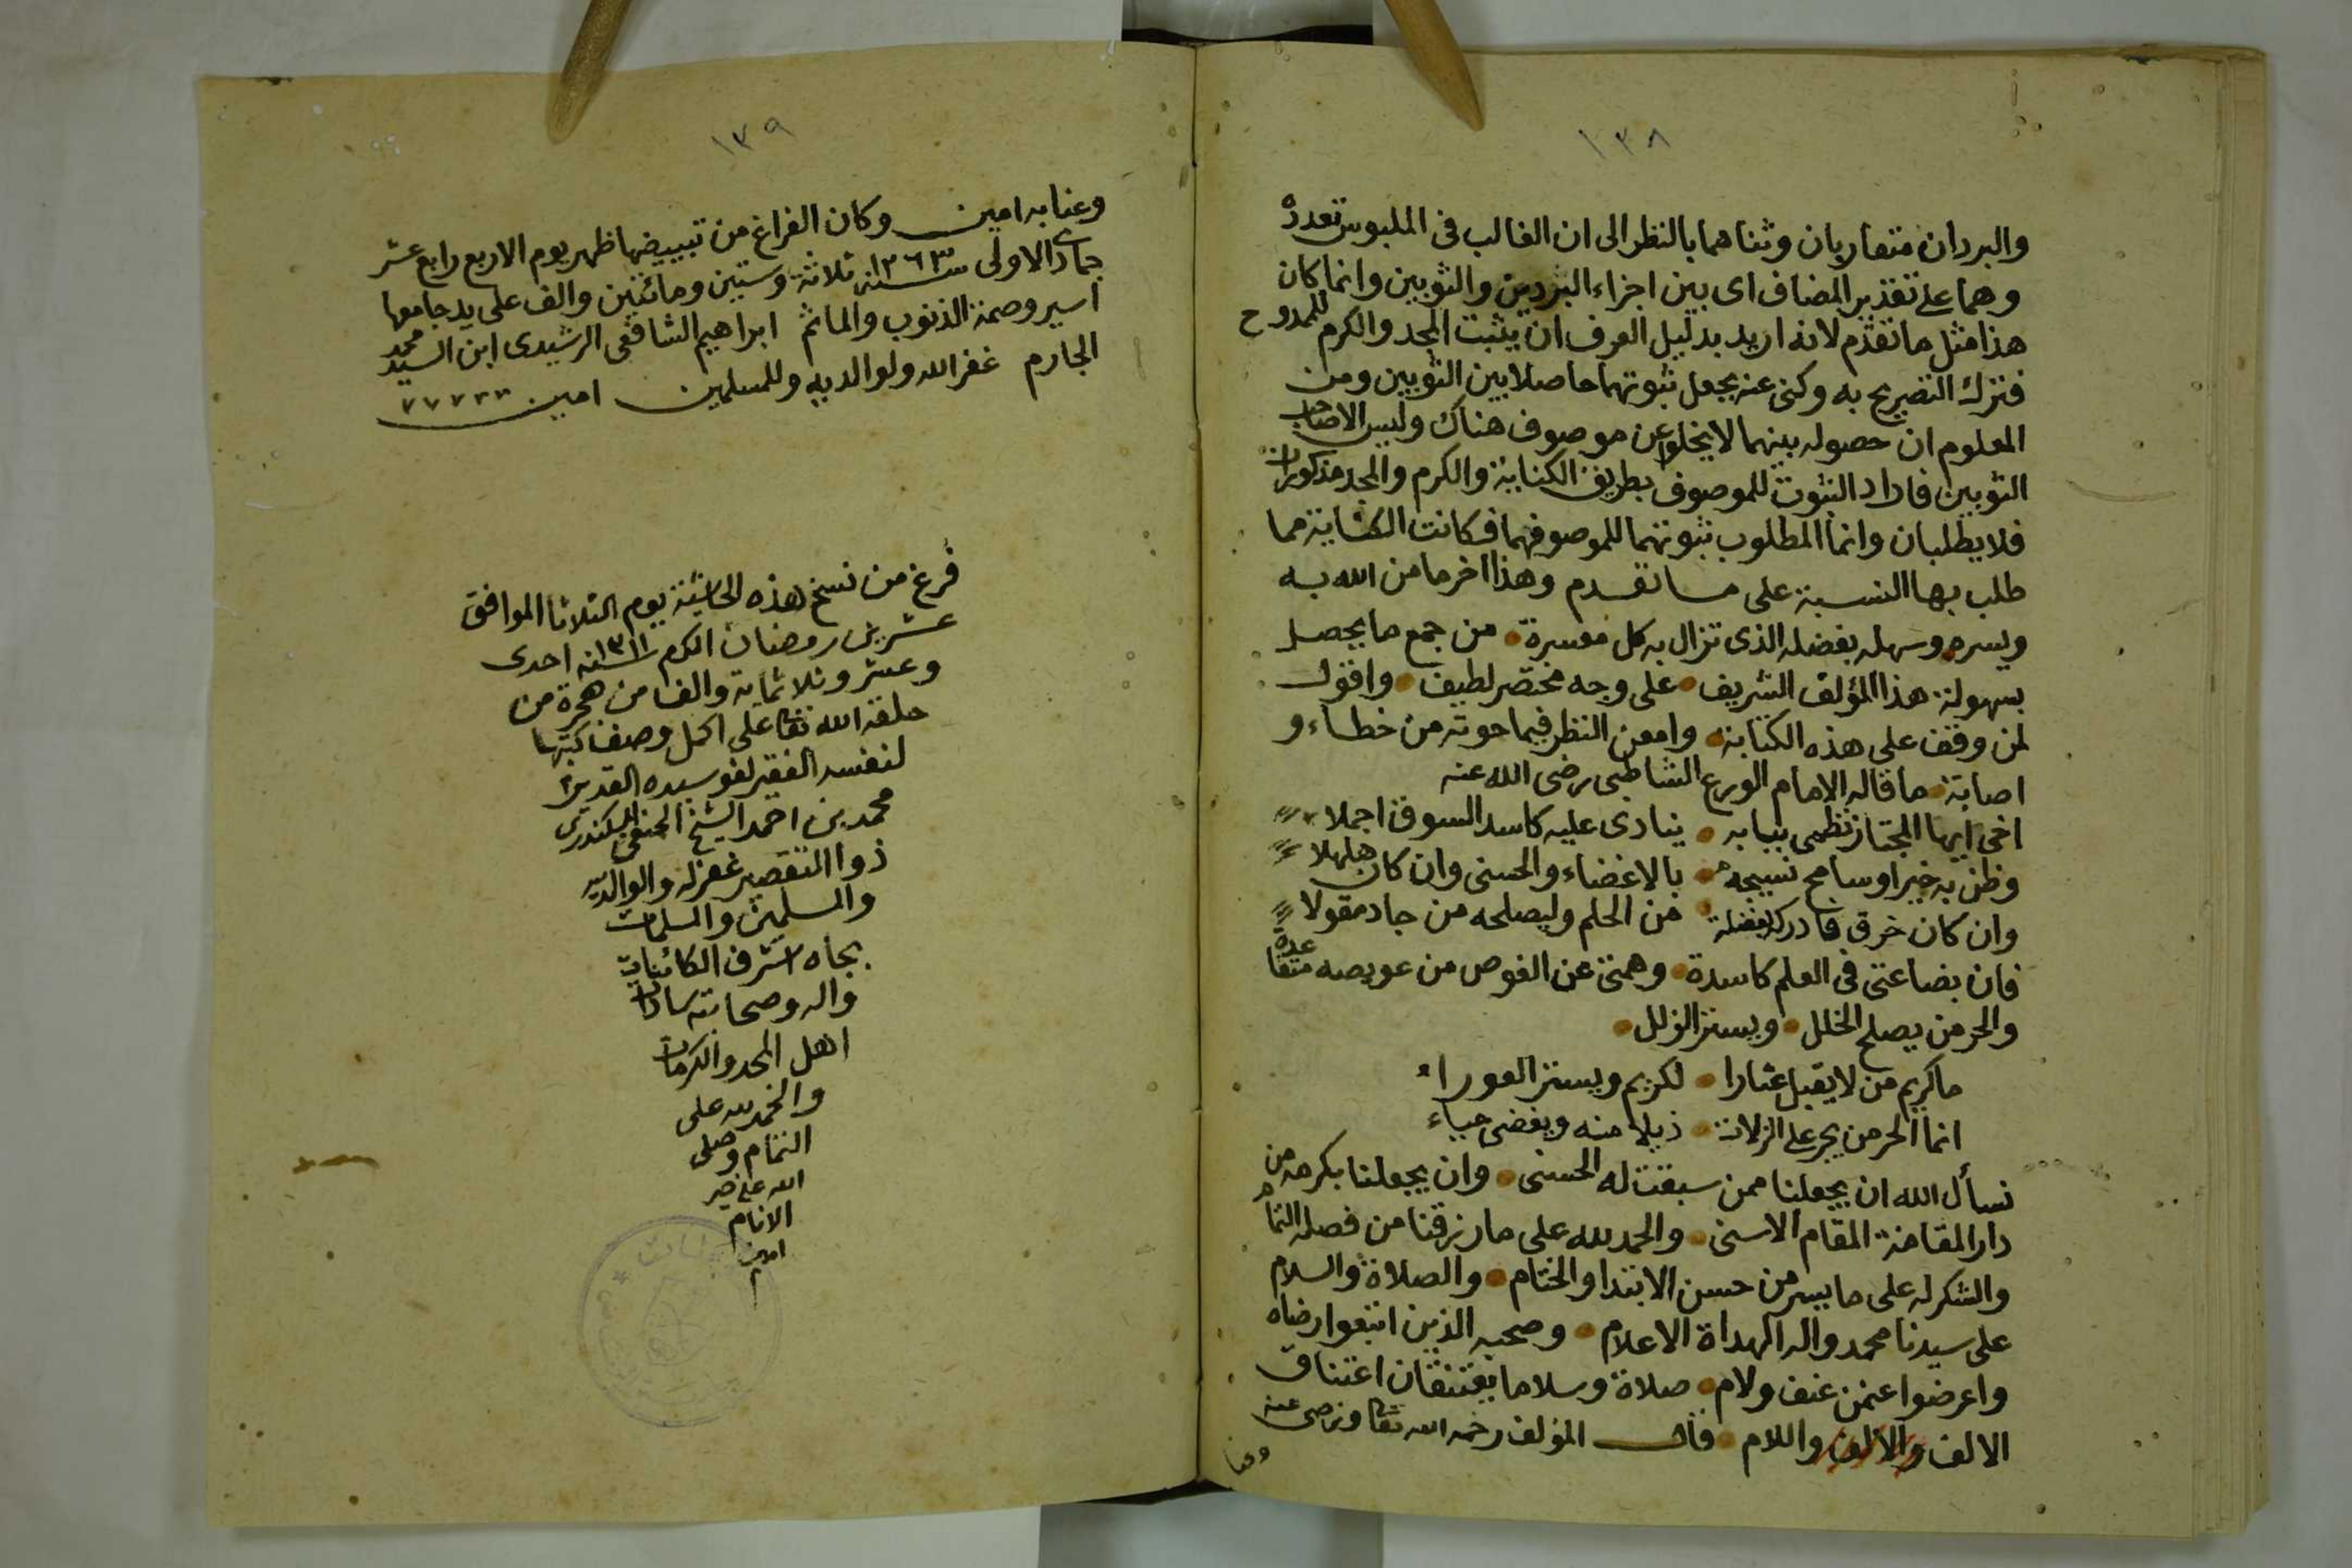 ١٣٨
والبردان متقاربان وثناهما بالنظر الى ان الغالب فى الملبوس تعدده
وهما على تقدير المضاف اى بين اجزاء البردين والثوبين وانما كان
هذا مثل ما تقدم لانه اريد بدليل العرف ان يثبت المجد والكرم للممدوح
فترك التصريح به وكنى عنه بجعل ثبوتهما حاصلا بين الثوبين ومن
المعلوم ان حصوله بينهما لا يخلوا عن موصوف هناك وليس الا صاحب
الثوبين فافاد الثبوت للموصوف بطريق الكناية والكرم والمجد مذكوران
فلا يطلبان وانما المطلوب ثبوتهما للموصوفهما فكانت الكناية مما
طلب بها النسبة على ما تقدم وهذا اخر ما من الله به
ويسره وسهله بفضله الذى تزال به كل معسرة من جمع ما يحصل
بسهولة هذا المؤلف الشريف على وجه مختصر لطيف واقول
لمن وقف على هذه الكتابة وامعن النظر فيما حوته من خطاء و
اصابة ما قاله الامام الورع الشاطبى رضى الله عنه
اخى ايها المجتاز نظمى ببابه ينادى عليه كاسد السوق اجملا
وظن به خيرا وسامح نسيجه بالاغضاء والحسنى وان كان هلهلا
وان كان خرق فادركه بفضلة من الحلم وليصلحه من جاد مقولا
فان بضاعتى فى العلم كاسدة وهمتى عن الغوص من عويصه متقاعدة
والحر من يصلح الخلل ويستر الزلل
ما كريم من لا يقبل عثارا لكريم ويستر العوراء
انما الحر من يجر على الزلات ذيلا منه ويغضى حياء
نسأل الله ان يجعلنا ممن سبقت له الحسنى وان يجعلنا بكرمه من
دار المقامة المقام الاسنى والحمد لله على ما رزقنا من فضله التام
والشكر له على ما يسر من حسن الابتدا والختام والصلاة والسلام
على سيدنا محمد واله الهداة الاعلام وصحبه الذين اتبعوا رضاه
واعرضوا عنمن عنف ولام صلاة وسلاما يعتنقان اعتناق
الالف والالف واللام قال المؤلف رحمه الله تعا ورضى عنه
وعنا
١٣٩
وعنا به امين وكان الفراغ من تبييضها ظهر يوم الاربع رابع عشر
جماد الاولى سنة ١٢٦٣ ثلاثة وستين ومائتين والف على يد جامعها
اسير وصمة الذنوب والماثم ابراهيم الشافعى الرشيدى ابن السيد محمد
الجارم غفر الله ولوالديه وللمسلمين امين
فرغ من نسخ هذه الحاشية يوم الثلاثا الموافق
عشرين رمضان الكرم سنة ١٣١١ احدى
وعشر وثلاثماية والف من هجرة من
خلقه الله تعا على اكمل وصف كتبها
لنفسه الفقير لعفو سيده القدير
محمد بن احمد الشيخ الحنفى السكندرى
ذوا التقصير غفر له والوالديه
والمسلمين والمسلمات
بجاه اشرف الكائنات
واله وصحابته سادات
اهل المجد والكرمات
والحمد لله على
التمام وصلى
الله على خير
الانام
امين
م